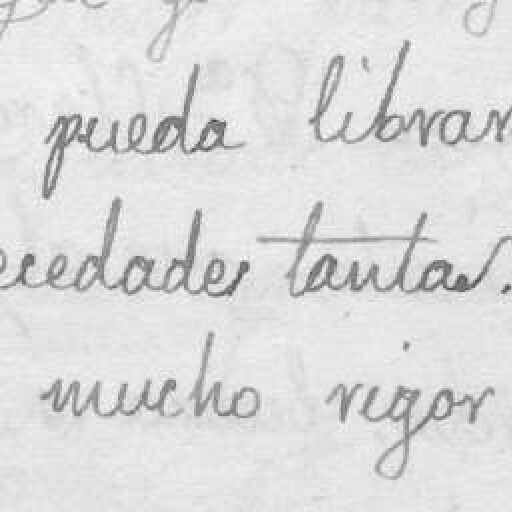 pueda librar
ecedades tantas.
mucho rigor